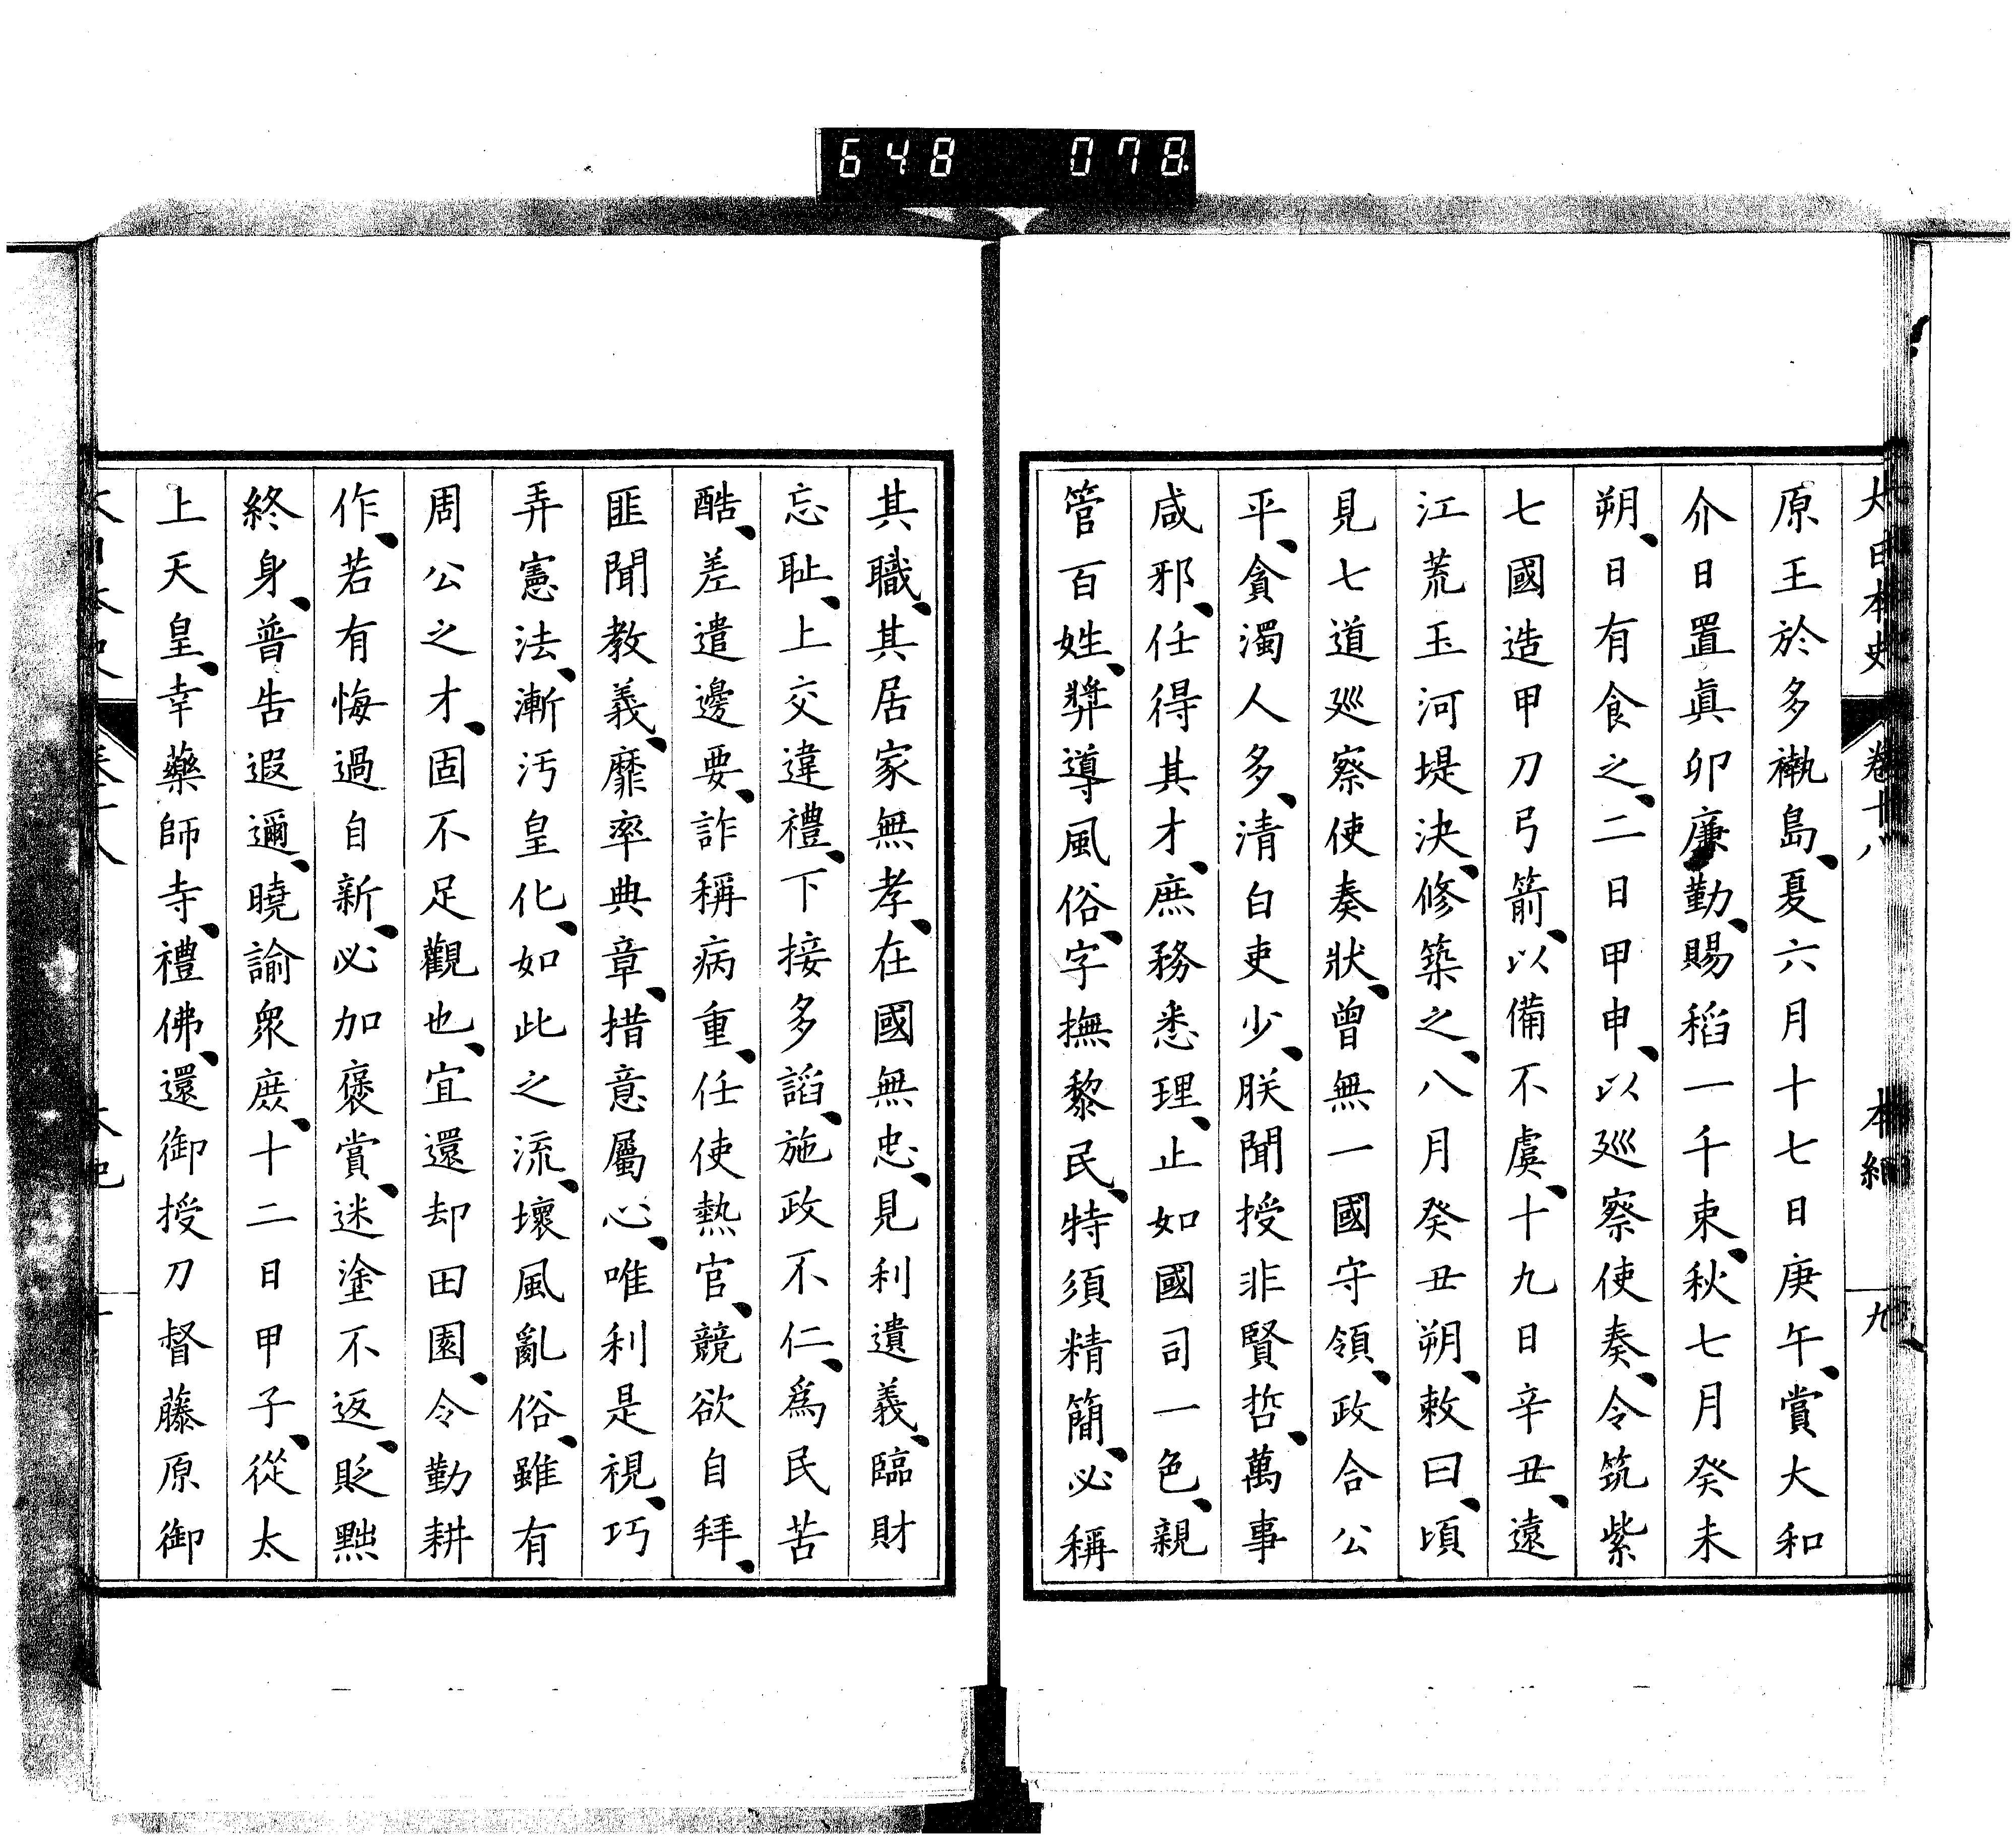 648 078
大日本史 卷十八 本紀 九
原王於多褹島、夏六月十七日庚午、賞大和
介日置眞卯廉勤、賜稻一千束、秋七月癸未
朔、日有食之、二日甲申、以廵察使奏、令筑紫
七國造甲刀弓箭、以備不虞、十九日辛丑、遠
江荒玉河堤決、修築之、八月癸丑朔、敕曰、頃
見七道廵察使奏狀、曾無一國守領、政合公
平、貪濁人多、清白吏少、朕聞授非賢哲、萬事
咸邪、任得其才、庶務悉理、止如國司一色、親
管百姓、奬導風俗、字撫黎民、特須精簡、必稱
其職、其居家無孝、在國無忠、見利遺義、臨財
忘耻、上交違禮、下接多謟、施政不仁、爲民苦
酷、差遣邊要、詐稱病重、任使熱官、競欲自拜、
匪聞教義、靡率典章、措意屬心、唯利是視、巧
弄憲法、漸汚皇化、如此之流、壞風亂俗、雖有
周公之才、固不足觀也、宜還却田園、令勤耕
作、若有悔過自新、必加褒賞、迷塗不返、貶黜
終身、普告遐邇、曉諭衆庶、十二日甲子、從太
上天皇、幸藥師寺、禮佛、還御授刀督藤原御